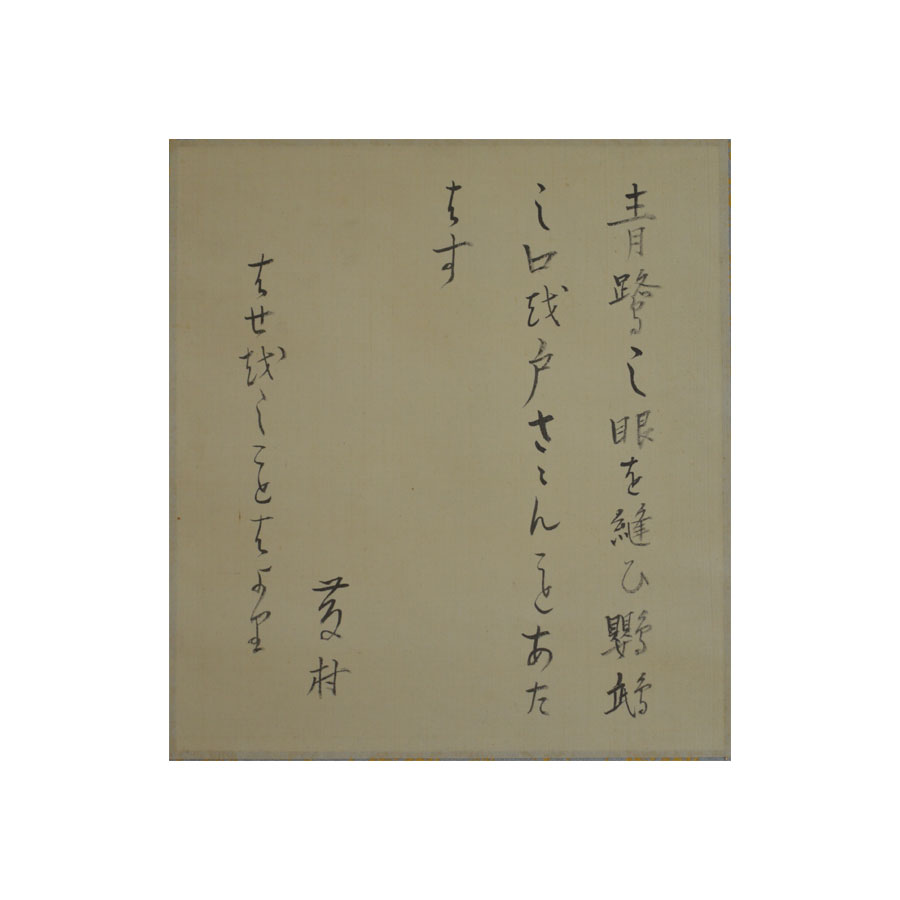 青鷺の眼を縫ひ鸚鵡
の口を戸さゝんことあた
はす
藤村
はせをのことはより